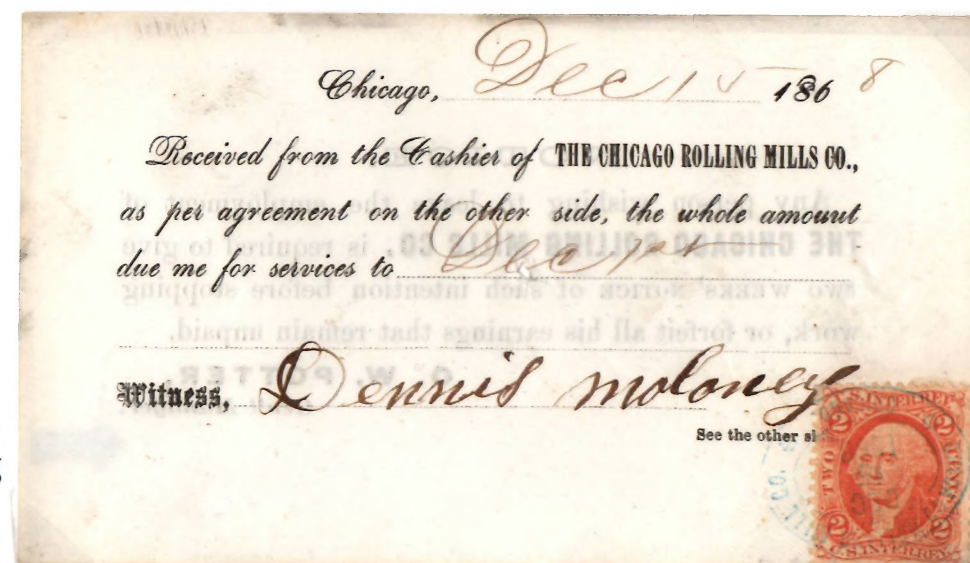 Chicago, Dec 15 1868
Received from the Cashier of THE CHICAGO ROLLING MILLS CO.,
as per agreement on the other side, the whole amount
due me for services to Dec 1st
Witness, Dennis Moloney
See the other si
U.S. INTER. REV.
2 2
TWO
2 2
U.S. INTER. REV.